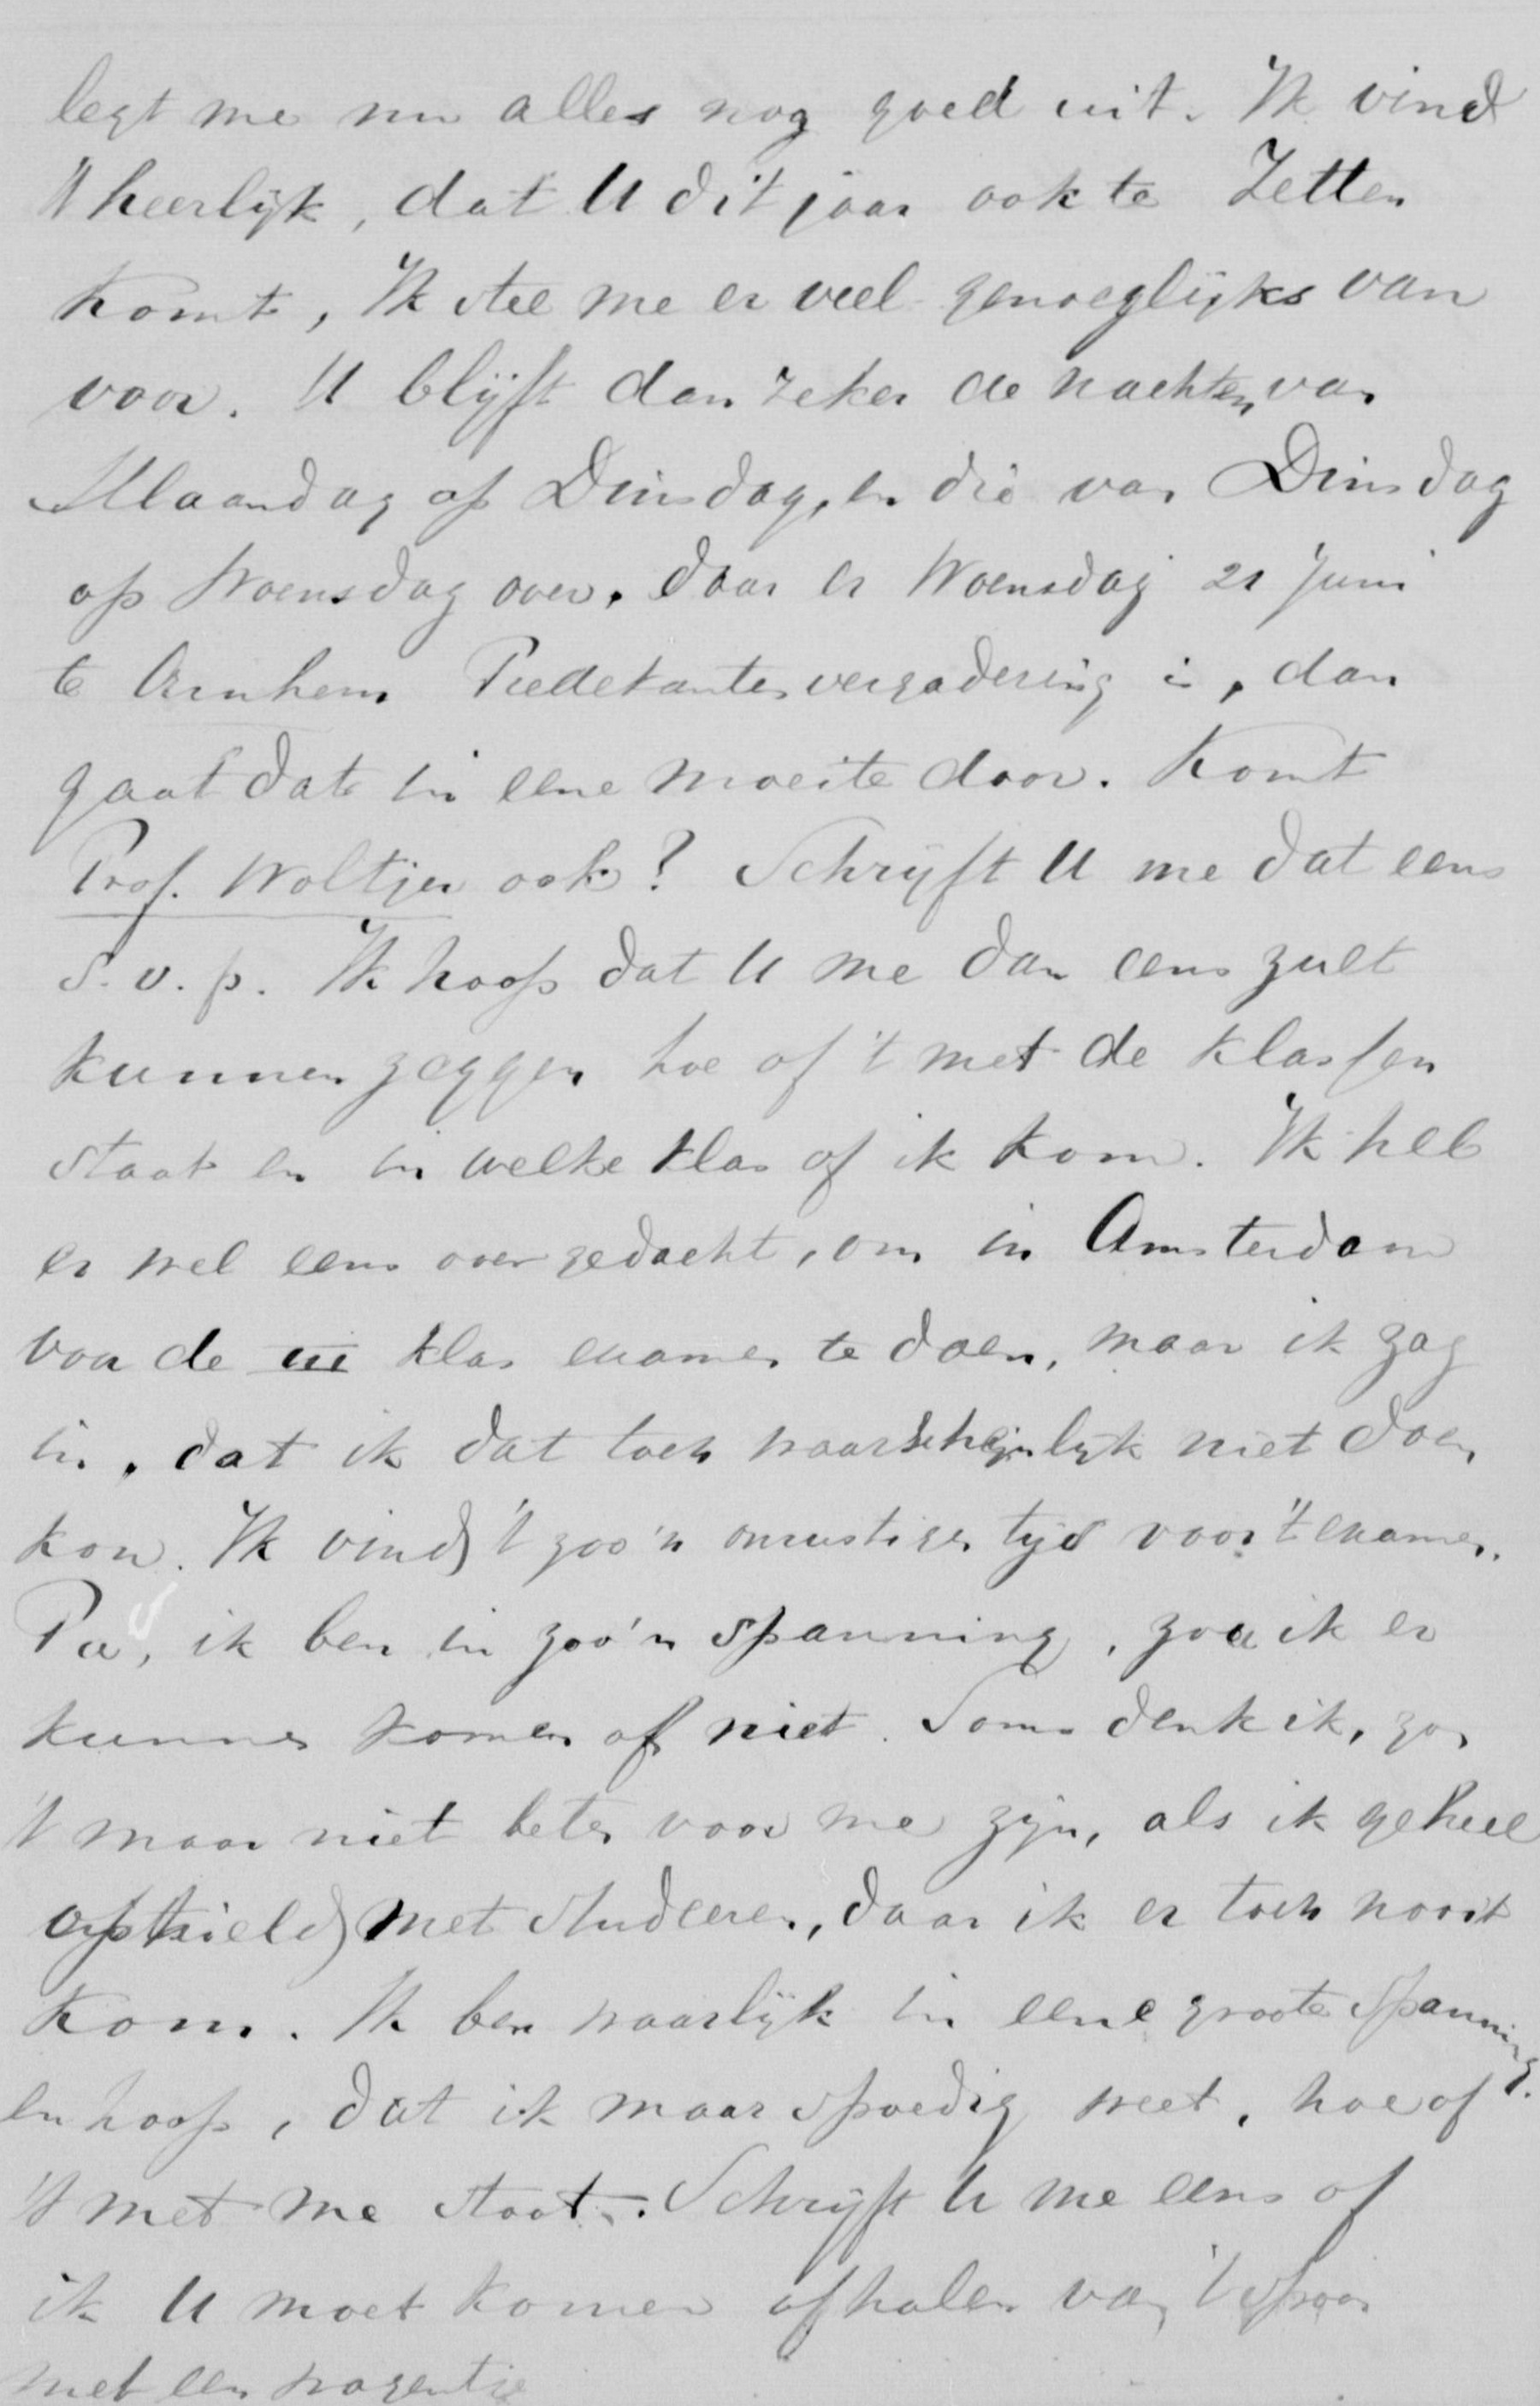 legt me nu alles nog goed uit. Ik vind
't heerlijk, dat U dit jaar ook te Zetten
komt, Ik stel me er veel genoeglijks van
voor. U blijft dan zeker de nachten van
Maandag op Dinsdag, en die van Dinsdag
op Woensdag over, daar er Woensdag 21 Juni
te Arnhem Predekantenvergadering is, dan
gaat dat in eene moeite door. Komt
Prof. Woltjer ook? Schrijft U me dat eens
s.v.p. Ik hoop dat U me dan eens zult
kunnen zeggen hoe of 't met de klassen
staat en in welke klas of ik kom. Ik heb
er wel eens over gedacht, om in Amsterdam
voor de III klas examen te doen, maar ik zag
in, dat ik dat toch waarschijnlijk niet doen
kon. Ik vind 't zoo'n onrustigen tijd voor 't examen.
Pa, ik ben in zoo'n spanning, zou ik er
kunnen komen of niet. Soms denk ik, zou
't maar niet beter voor me zijn, als ik geheel
ophield met studeeren, daar ik er toch nooit
kom. Ik ben waarlijk in eene groote spanning.
en hoop, dat ik maar spoedig weet, hoe of
't met me staat. Schrijft U me eens of
ik U moet komen afhalen van 't spoor
met een wagentje